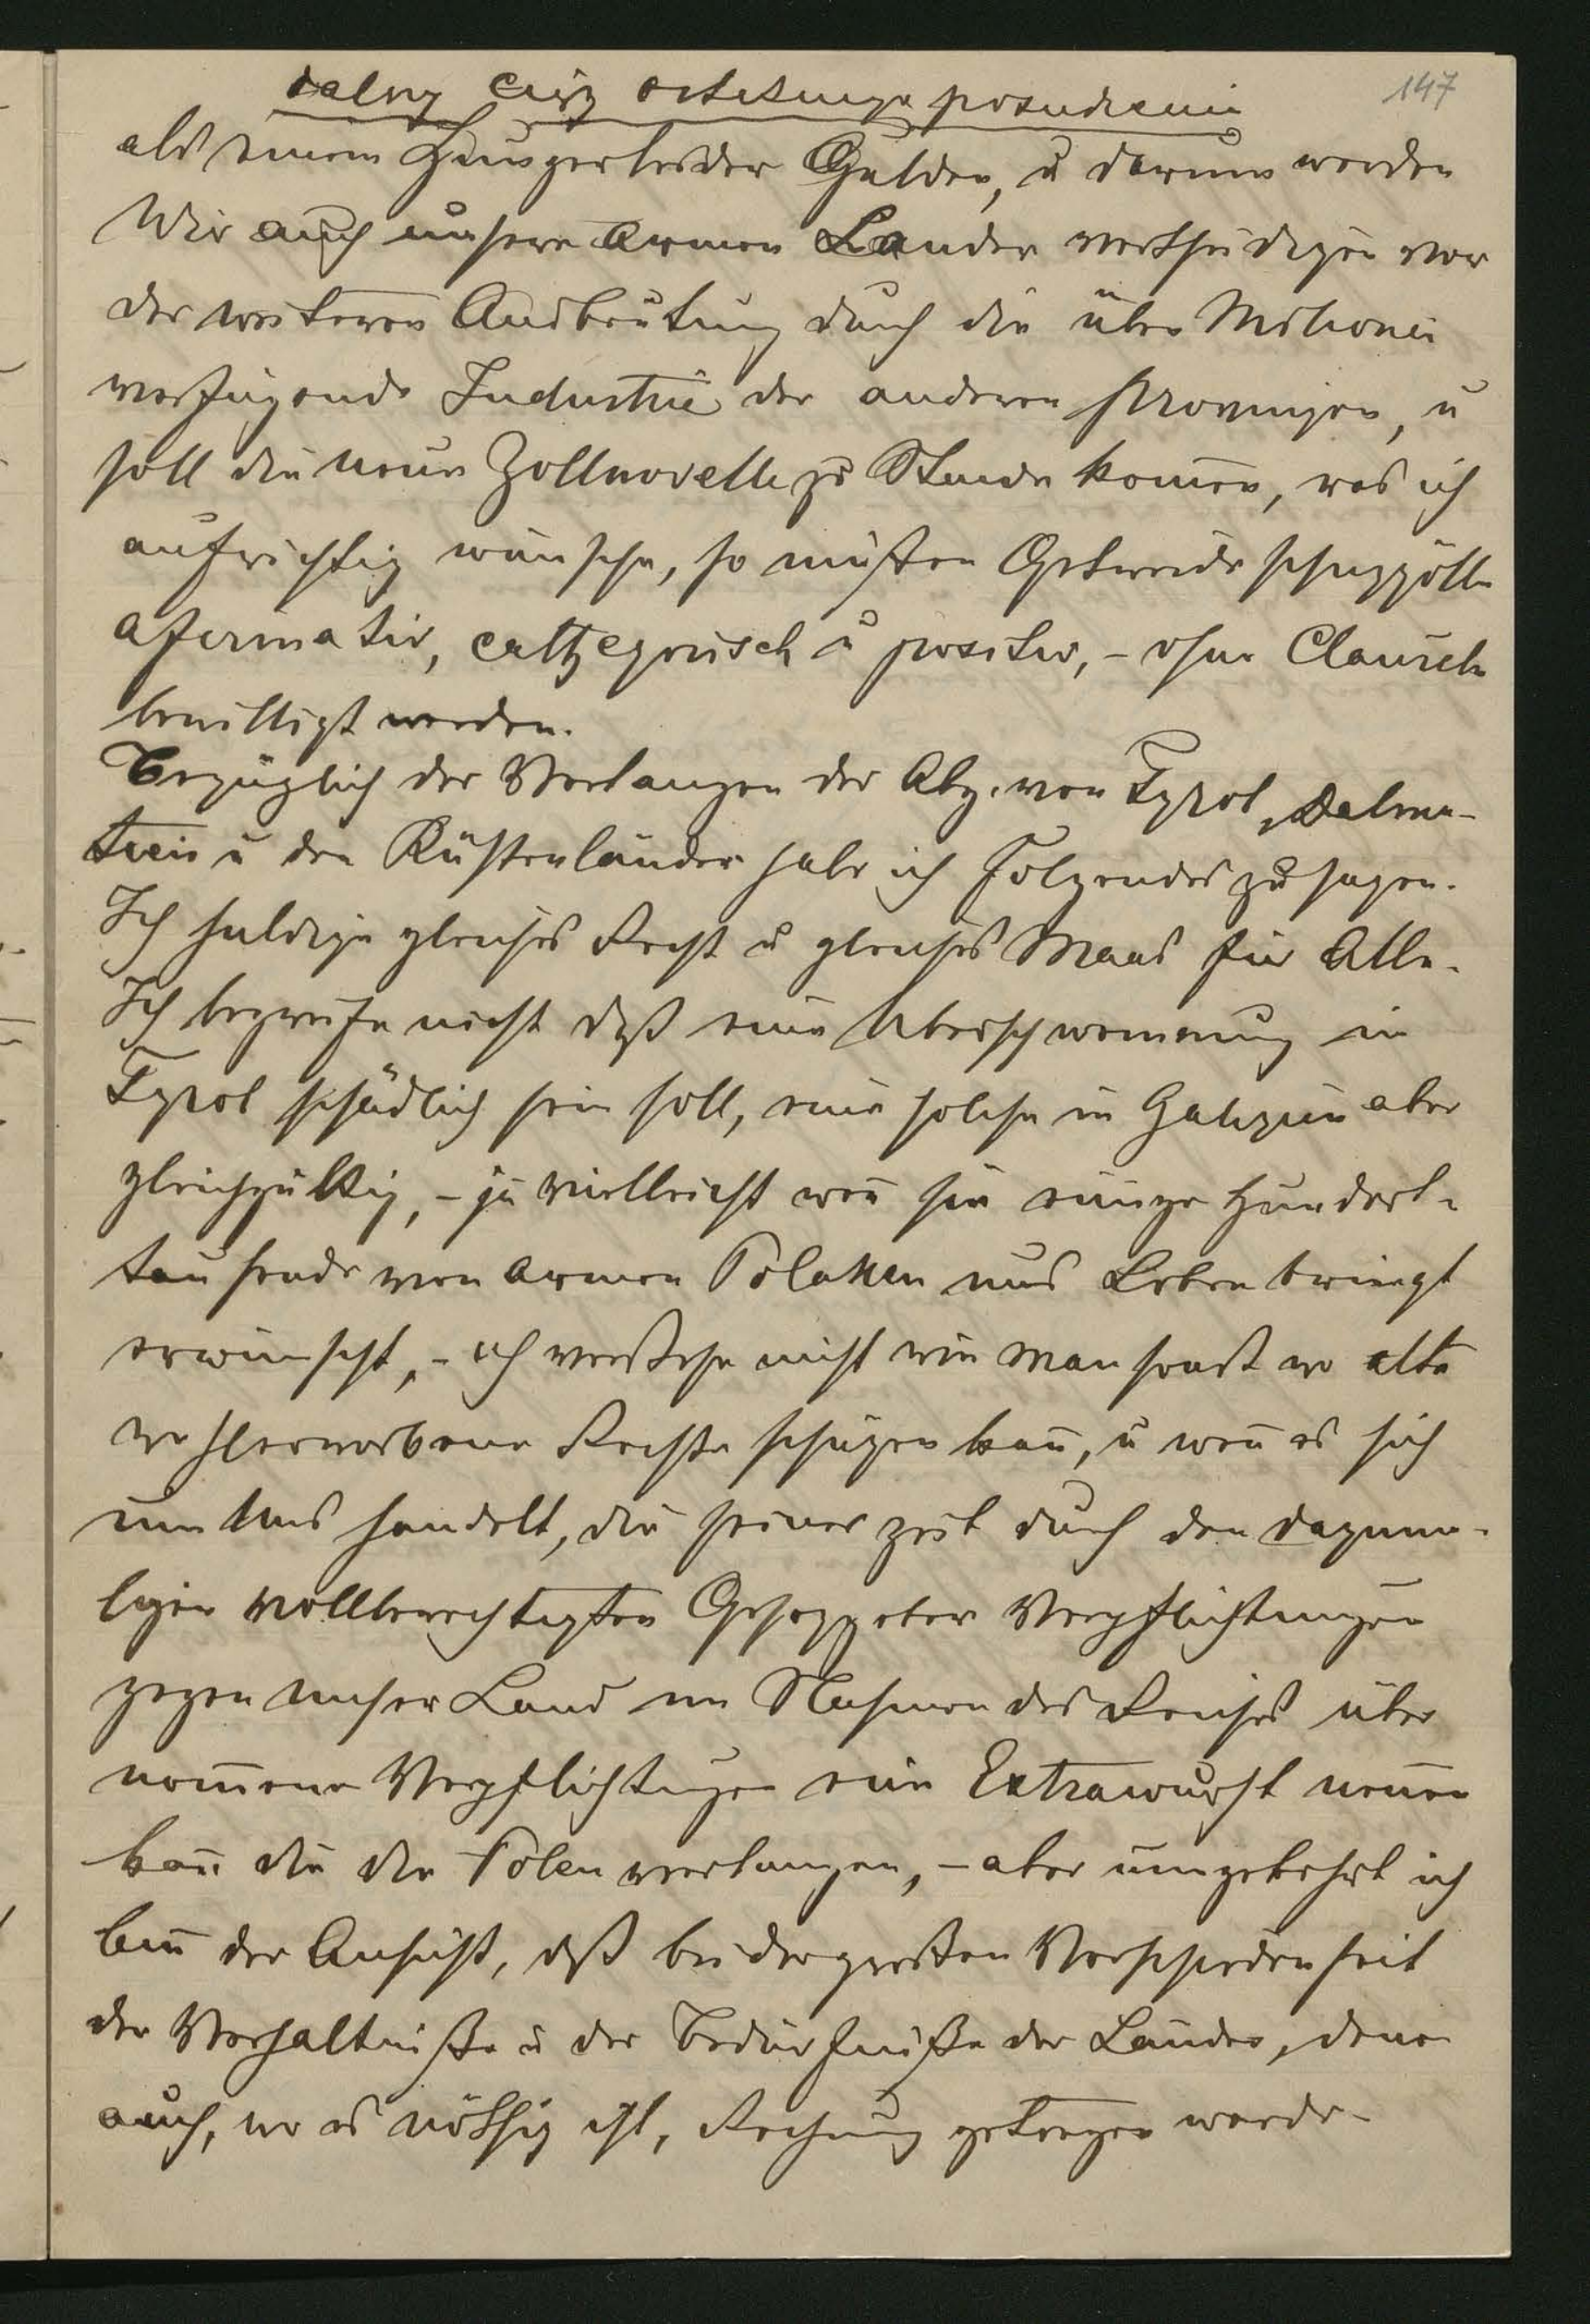 dalszy ciąg ostatniego posiedzenia
147
als einem Hungerleider Gulden, u darum werden
Wir auch unsere armen Lander vertheidigen vor
der weiteren Ausbeutung durch die über Milionen
verfügende Industrie der anderen Provinzen, u
soll die neue Zollnovelle zu Stande kom̄en, was ich
aufrichtig wünsche, so müßen Getreideschutzzölle
afirmativ, cattegorisch u positiv, – ohne Clausel
bewilligt werden.
Bezüglich der Verlangen der Abg. von Tyrol, Dalma-
tien u den Küstenländer habe ich Folgendes zu sagen.
Ich huldige gleiches Recht u gleiches Maas für Alle.
Ich begreife nicht daß eine Uberschwemmung in
Tyrol schädlich sein soll, eine solche in Galizien aber
gleichgültig, – ja vielleicht wen̄ sie einige Hundert-
tausende von armen Polaken ums Leben bringt
erwünscht, – ich verstehe nicht wie man sonst wo alte
wohlerworbene Rechte schützen kan̄, u wen̄ es sich
um Uns handelt, die seiner zeit durch den dazuma-
ligen vollberechtigten Gesetzgeber Verpflichtungen
gegen unser Land im Rahmen des Reiches über
nom̄ene Verpflichtungen eine Extrawurst nen̄en
kan̄ die die Polen verlangen, – aber umgekehrt ich
bin̄ der Ansicht, daß bei der großen Verschiedenheit
der Verhaltniße u der Bedürfniße der Länder, denen
auch, wo es nöthig ist, Rechnung getragen werde-